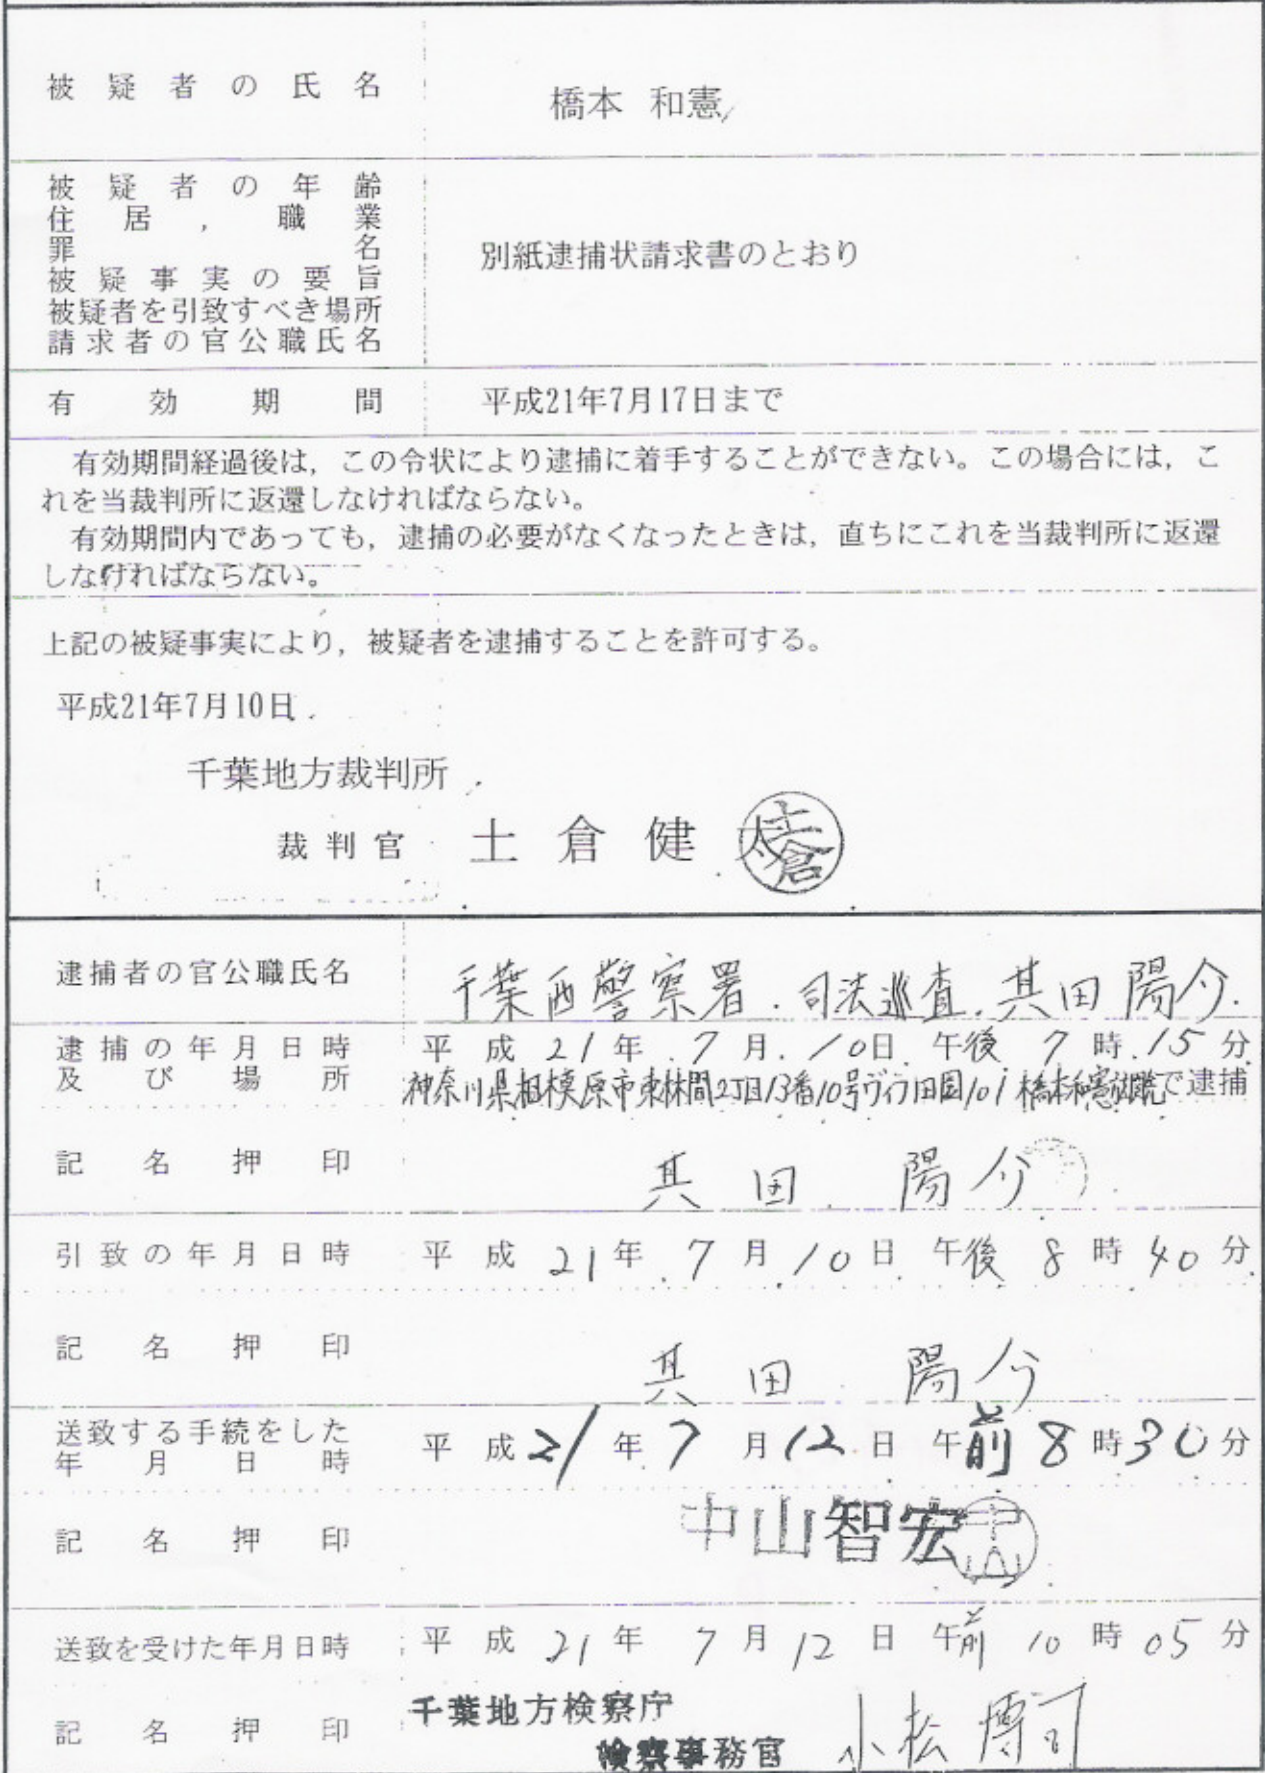 被疑者の氏名 橋本 和憲
被疑者の年齢
住居,職業
罪名
被疑事実の要旨
被疑者を引致すべき場所
請求者の官公職氏名
別紙逮捕状請求書のとおり
有効期間 平成21年7月17日まで
有効期間経過後は,この令状により逮捕に着手することができない。この場合には,こ
れを当裁判所に返還しなければならない。
有効期間内であっても,逮捕の必要がなくなったときは,直ちにこれを当裁判所に返還
しなければならない。
上記の被疑事実により,被疑者を逮捕することを許可する。
平成21年7月10日
千葉地方裁判所
裁判官 土倉健太 土倉
逮捕者の官公職氏名 千葉西警察署.司法巡査.其田陽介.
逮捕の年月日時 平成21年7月10日午後7時15分
及び場所 神奈川県相模原市東林間2丁目13番10号 101 橋本和憲 で逮捕
記名押印 其田 陽介
引致の年月日時 平成21年7月10日午後8時40分
記名押印 其田 陽介
送致する手続をした
年月日時 平成21年7月12日午前8時30分
記名押印 中山智宏 中山
送致を受けた年月日時 平成21年7月12日午前10時05分
記名押印 千葉地方検察庁
検察事務官 小松 博司